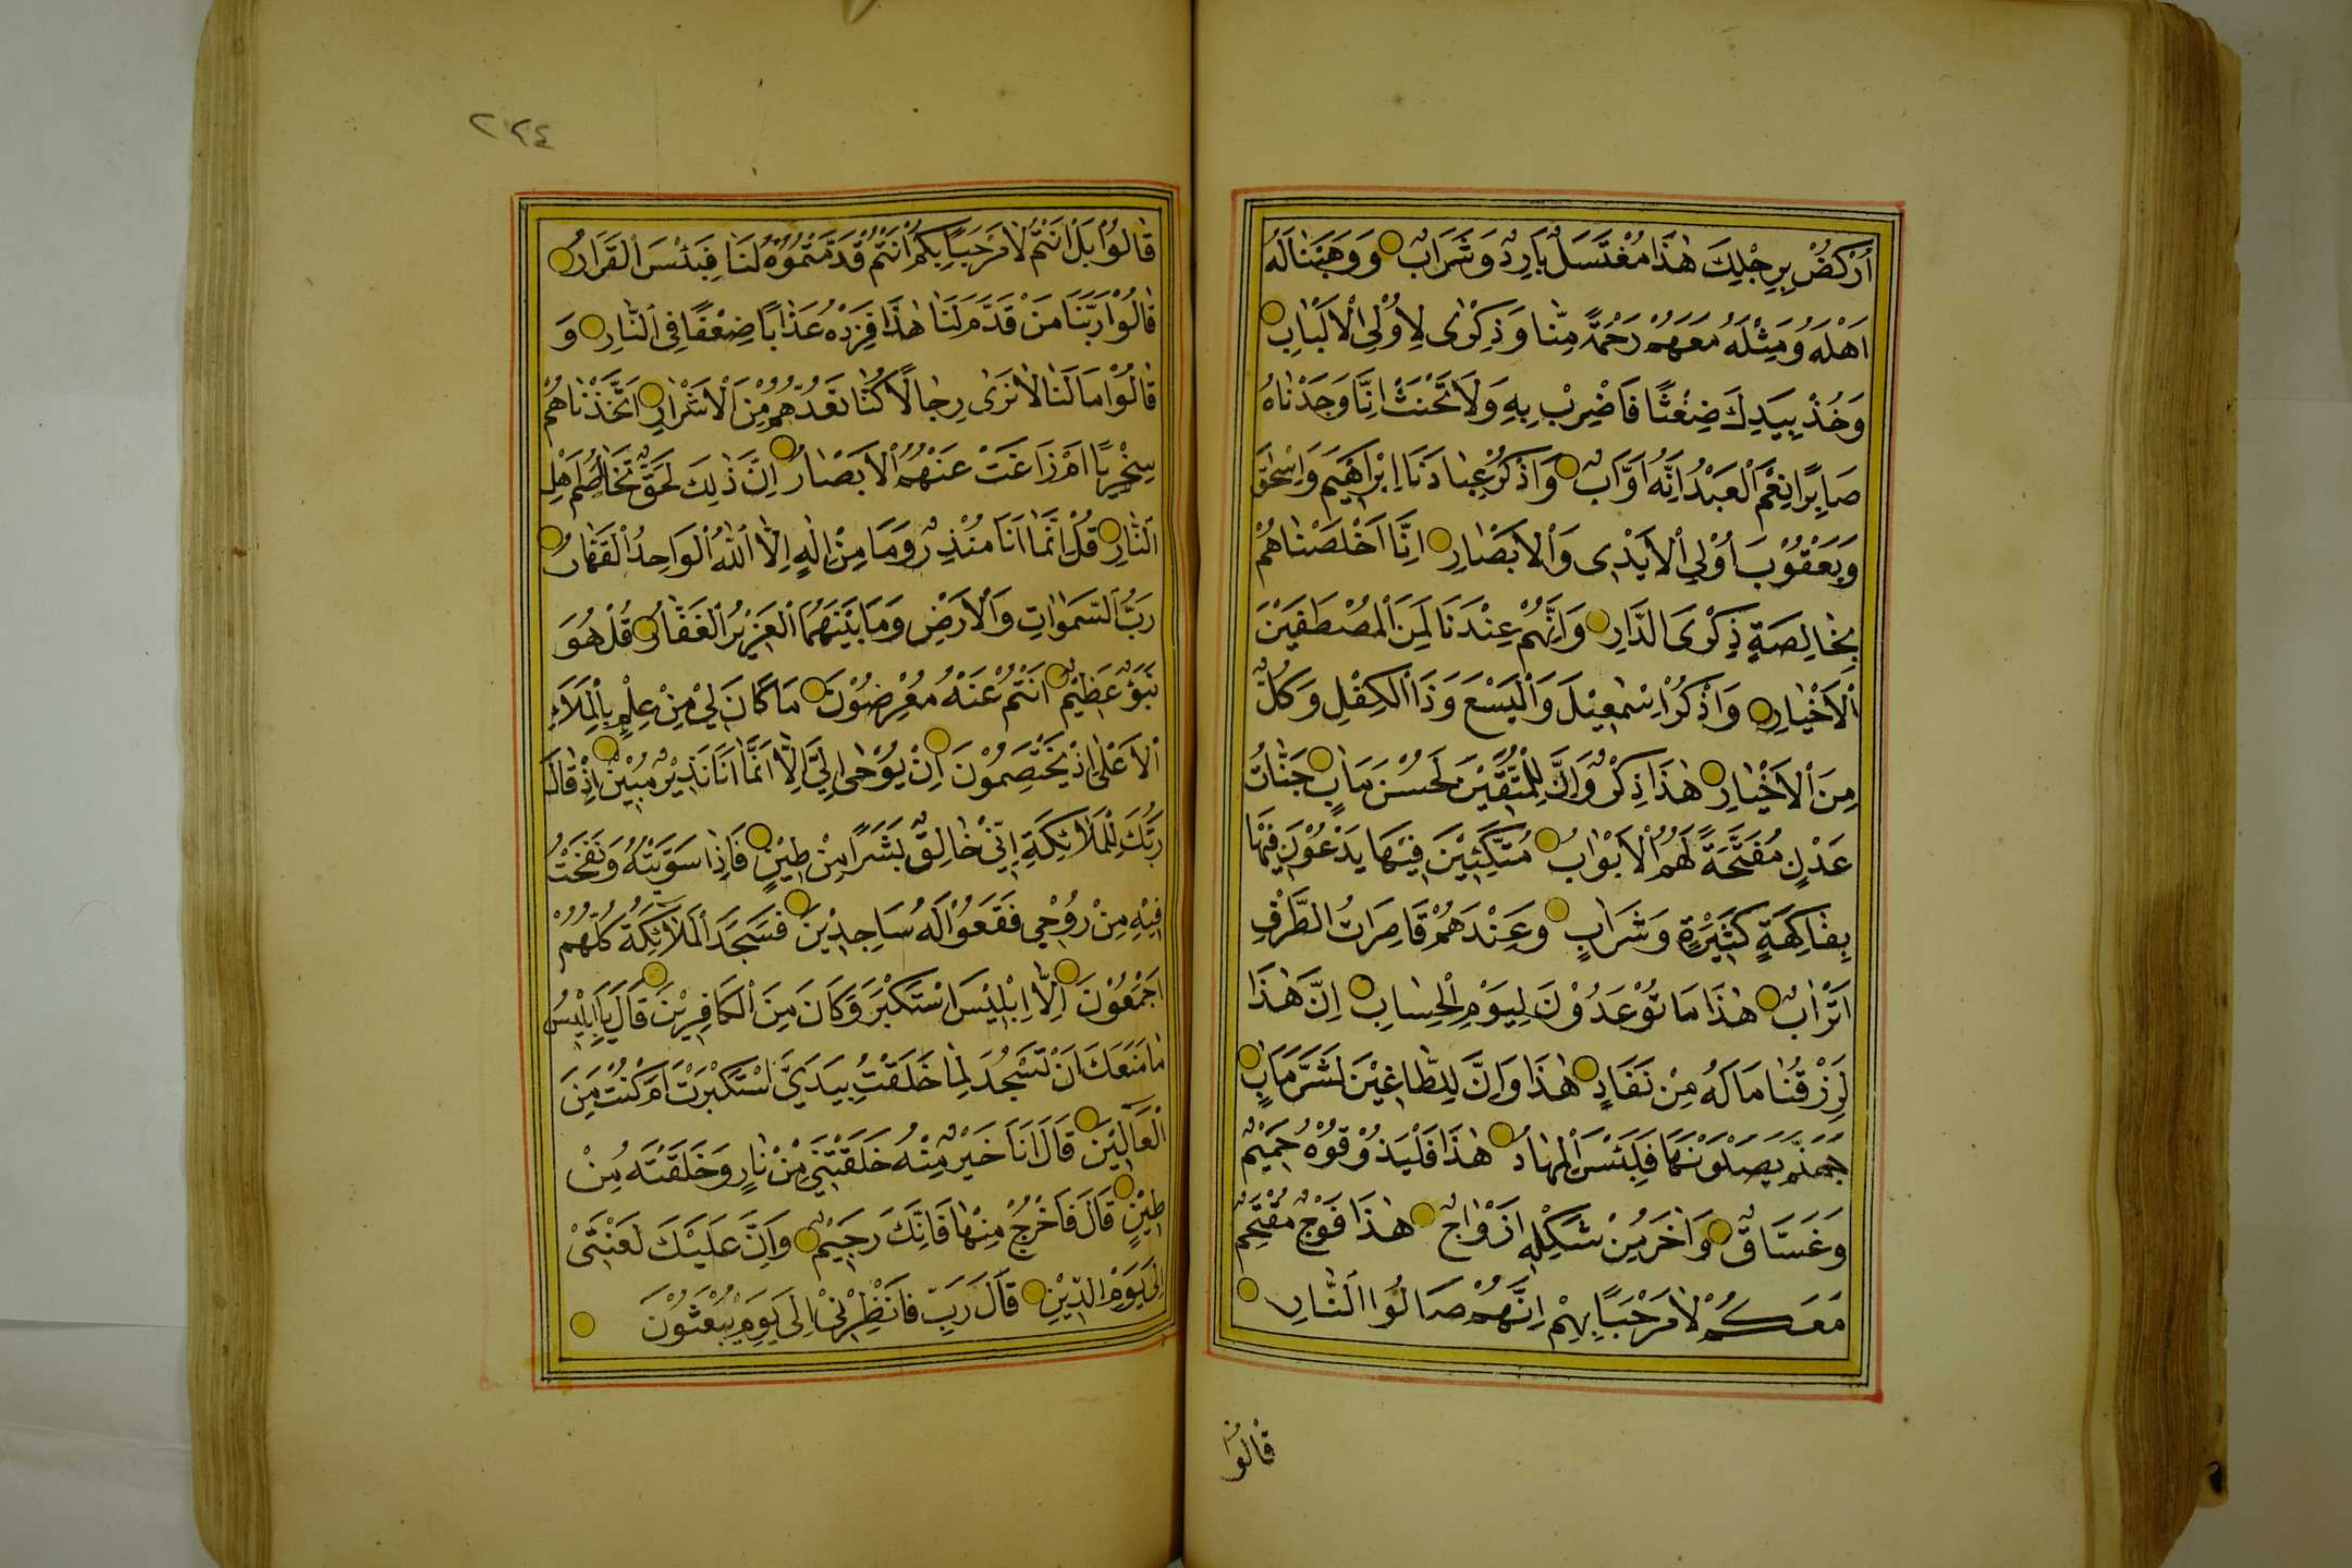 اُرْكُضْ بِرِجْلِكَ هٰذَا مُغْتَسَلٌ بَارِدٌ وَشَرَابٌ وَوَهَبْنَا لَهُ
اَهْلَهُ وَمِثْلَهُ مَعَهُمْ رَحْمَةً مِنَّا وَذِكْرٰى لِاُولِى الْاَلْبَابِ
وَخُذْ بِيَدِكَ ضِغْثًا فَاضْرِبْ بِهِ وَلَا تَحْنَثْ اِنَّا وَجَدْنَاهُ
صَابِرًا نِعْمَ الْعَبْدُ اِنَّهُ اَوَّابٌ وَاذْكُرْ عِبَادَنَا اِبْرَاهِيمَ وَاِسْحٰقَ
وَيَعْقُوْبَ اُوْلِى الْاَيْدِى وَالْاَبْصَارِ اِنَّا اَخْلَصْنَاهُمْ
بِخَالِصَةٍ ذِكْرَى الدَّارِ وَاِنَّهُمْ عِنْدَنَا لَمِنَ الْمُصْطَفَيْنَ
الْاَخْيَارِ وَاذْكُرْ اِسْمٰعِيْلَ وَالْيَسَعَ وَذَا الْكِفْلِ وَكُلٌّ
مِنَ الْاَخْيَارِ هٰذَا ذِكْرٌ وَاِنَّ لِلْمُتَّقِيْنَ لَحُسْنَ مَاٰبٍ جَنَّاتُ
عَدْنٍ مُفَتَّحَةً لَهُمُ الْاَبْوَابُ مُتَّكِئِيْنَ فِيْهَا يَدْعُوْنَ فِيْهَا
بِفَاكِهَةٍ كَثِيْرَةٍ وَشَرَابٍ وَعِنْدَهُمْ قَاصِرَاتُ الطَّرْفِ
اَتْرَابٌ هٰذَا مَا تُوْعَدُوْنَ لِيَوْمِ الْحِسَابِ اِنَّ هٰذَا
لَرِزْقُنَا مَا لَهُ مِنْ نَفَادٍ هٰذَا وَاِنَّ لِلطَّاغِيْنَ لَشَرَّ مَاٰبٍ
جَهَنَّمَ يَصْلَوْنَهَا فَبِئْسَ الْمِهَادُ هٰذَا فَلْيَذُوْقُوْهُ حَمِيْمٌ
وَغَسَّاقٌ وَاٰخَرُ مِنْ شَكْلِهِ اَزْوَاجٌ هٰذَا فَوْجٌ مُقْتَحِمٌ
مَعَكُمْ لَا مَرْحَبًا بِهِمْ اِنَّهُمْ صَالُوا النَّارِ
قَالُوْا
٢٢٤
قَالُوْا بَلْ اَنْتُمْ لَا مَرْحَبًا بِكُمْ اَنْتُمْ قَدَّمْتُمُوْهُ لَنَا فَبِئْسَ الْقَرَارُ
قَالُوْا رَبَّنَا مَنْ قَدَّمَ لَنَا هٰذَا فَزِدْهُ عَذَابًا ضِعْفًا فِى النَّارِ وَ
قَالُوْا مَا لَنَا لَا نَرٰى رِجَالًا كُنَّا نَعُدُّهُمْ مِنَ الْاَشْرَارِ اَتَّخَذْنَاهُمْ
سِخْرِيًّا اَمْ زَاغَتْ عَنْهُمُ الْاَبْصَارُ اِنَّ ذٰلِكَ لَحَقٌّ تَخَاصُمُ اَهْلِ
النَّارِ قُلْ اِنَّمَا اَنَا مُنْذِرٌ وَمَا مِنْ اِلٰهٍ اِلَّا اللّٰهُ الْوَاحِدُ الْقَهَّارُ
رَبُّ السَّمٰوَاتِ وَالْاَرْضِ وَمَا بَيْنَهُمَا الْعَزِيْزُ الْغَفَّارُ قُلْ هُوَ
نَبَؤٌ عَظِيْمٌ اَنْتُمْ عَنْهُ مُعْرِضُوْنَ مَا كَانَ لِيَ مِنْ عِلْمٍ بِالْمَلَاِ
الْاَعْلٰى اِذْ يَخْتَصِمُوْنَ اِنْ يُوْحٰى اِلَيَّ اِلَّا اَنَّمَا اَنَا نَذِيْرٌ مُبِيْنٌ اِذْ قَالَ
رَبُّكَ لِلْمَلَائِكَةِ اِنِّيْ خَالِقٌ بَشَرًا مِنْ طِيْنٍ فَاِذَا سَوَّيْتُهُ وَنَفَخْتُ
فِيْهِ مِنْ رُوْحِي فَقَعُوْا لَهُ سَاجِدِيْنَ فَسَجَدَ الْمَلَائِكَةُ كُلُّهُمْ
اَجْمَعُوْنَ اِلَّا اِبْلِيْسَ اسْتَكْبَرَ وَكَانَ مِنَ الْكَافِرِيْنَ قَالَ يَا اِبْلِيْسُ
مَا مَنَعَكَ اَنْ تَسْجُدَ لِمَا خَلَقْتُ بِيَدَيَّ اَسْتَكْبَرْتَ اَمْ كُنْتَ مِنَ
الْعَالِيْنَ قَالَ اَنَا خَيْرٌ مِنْهُ خَلَقْتَنِيْ مِنْ نَارٍ وَخَلَقْتَهُ مِنْ
طِيْنٍ قَالَ فَاخْرُجْ مِنْهَا فَاِنَّكَ رَجِيْمٌ وَاِنَّ عَلَيْكَ لَعْنَتِيْ
اِلٰى يَوْمِ الدِّيْنِ قَالَ رَبِّ فَاَنْظِرْنِيْ اِلٰى يَوْمِ يُبْعَثُوْنَ